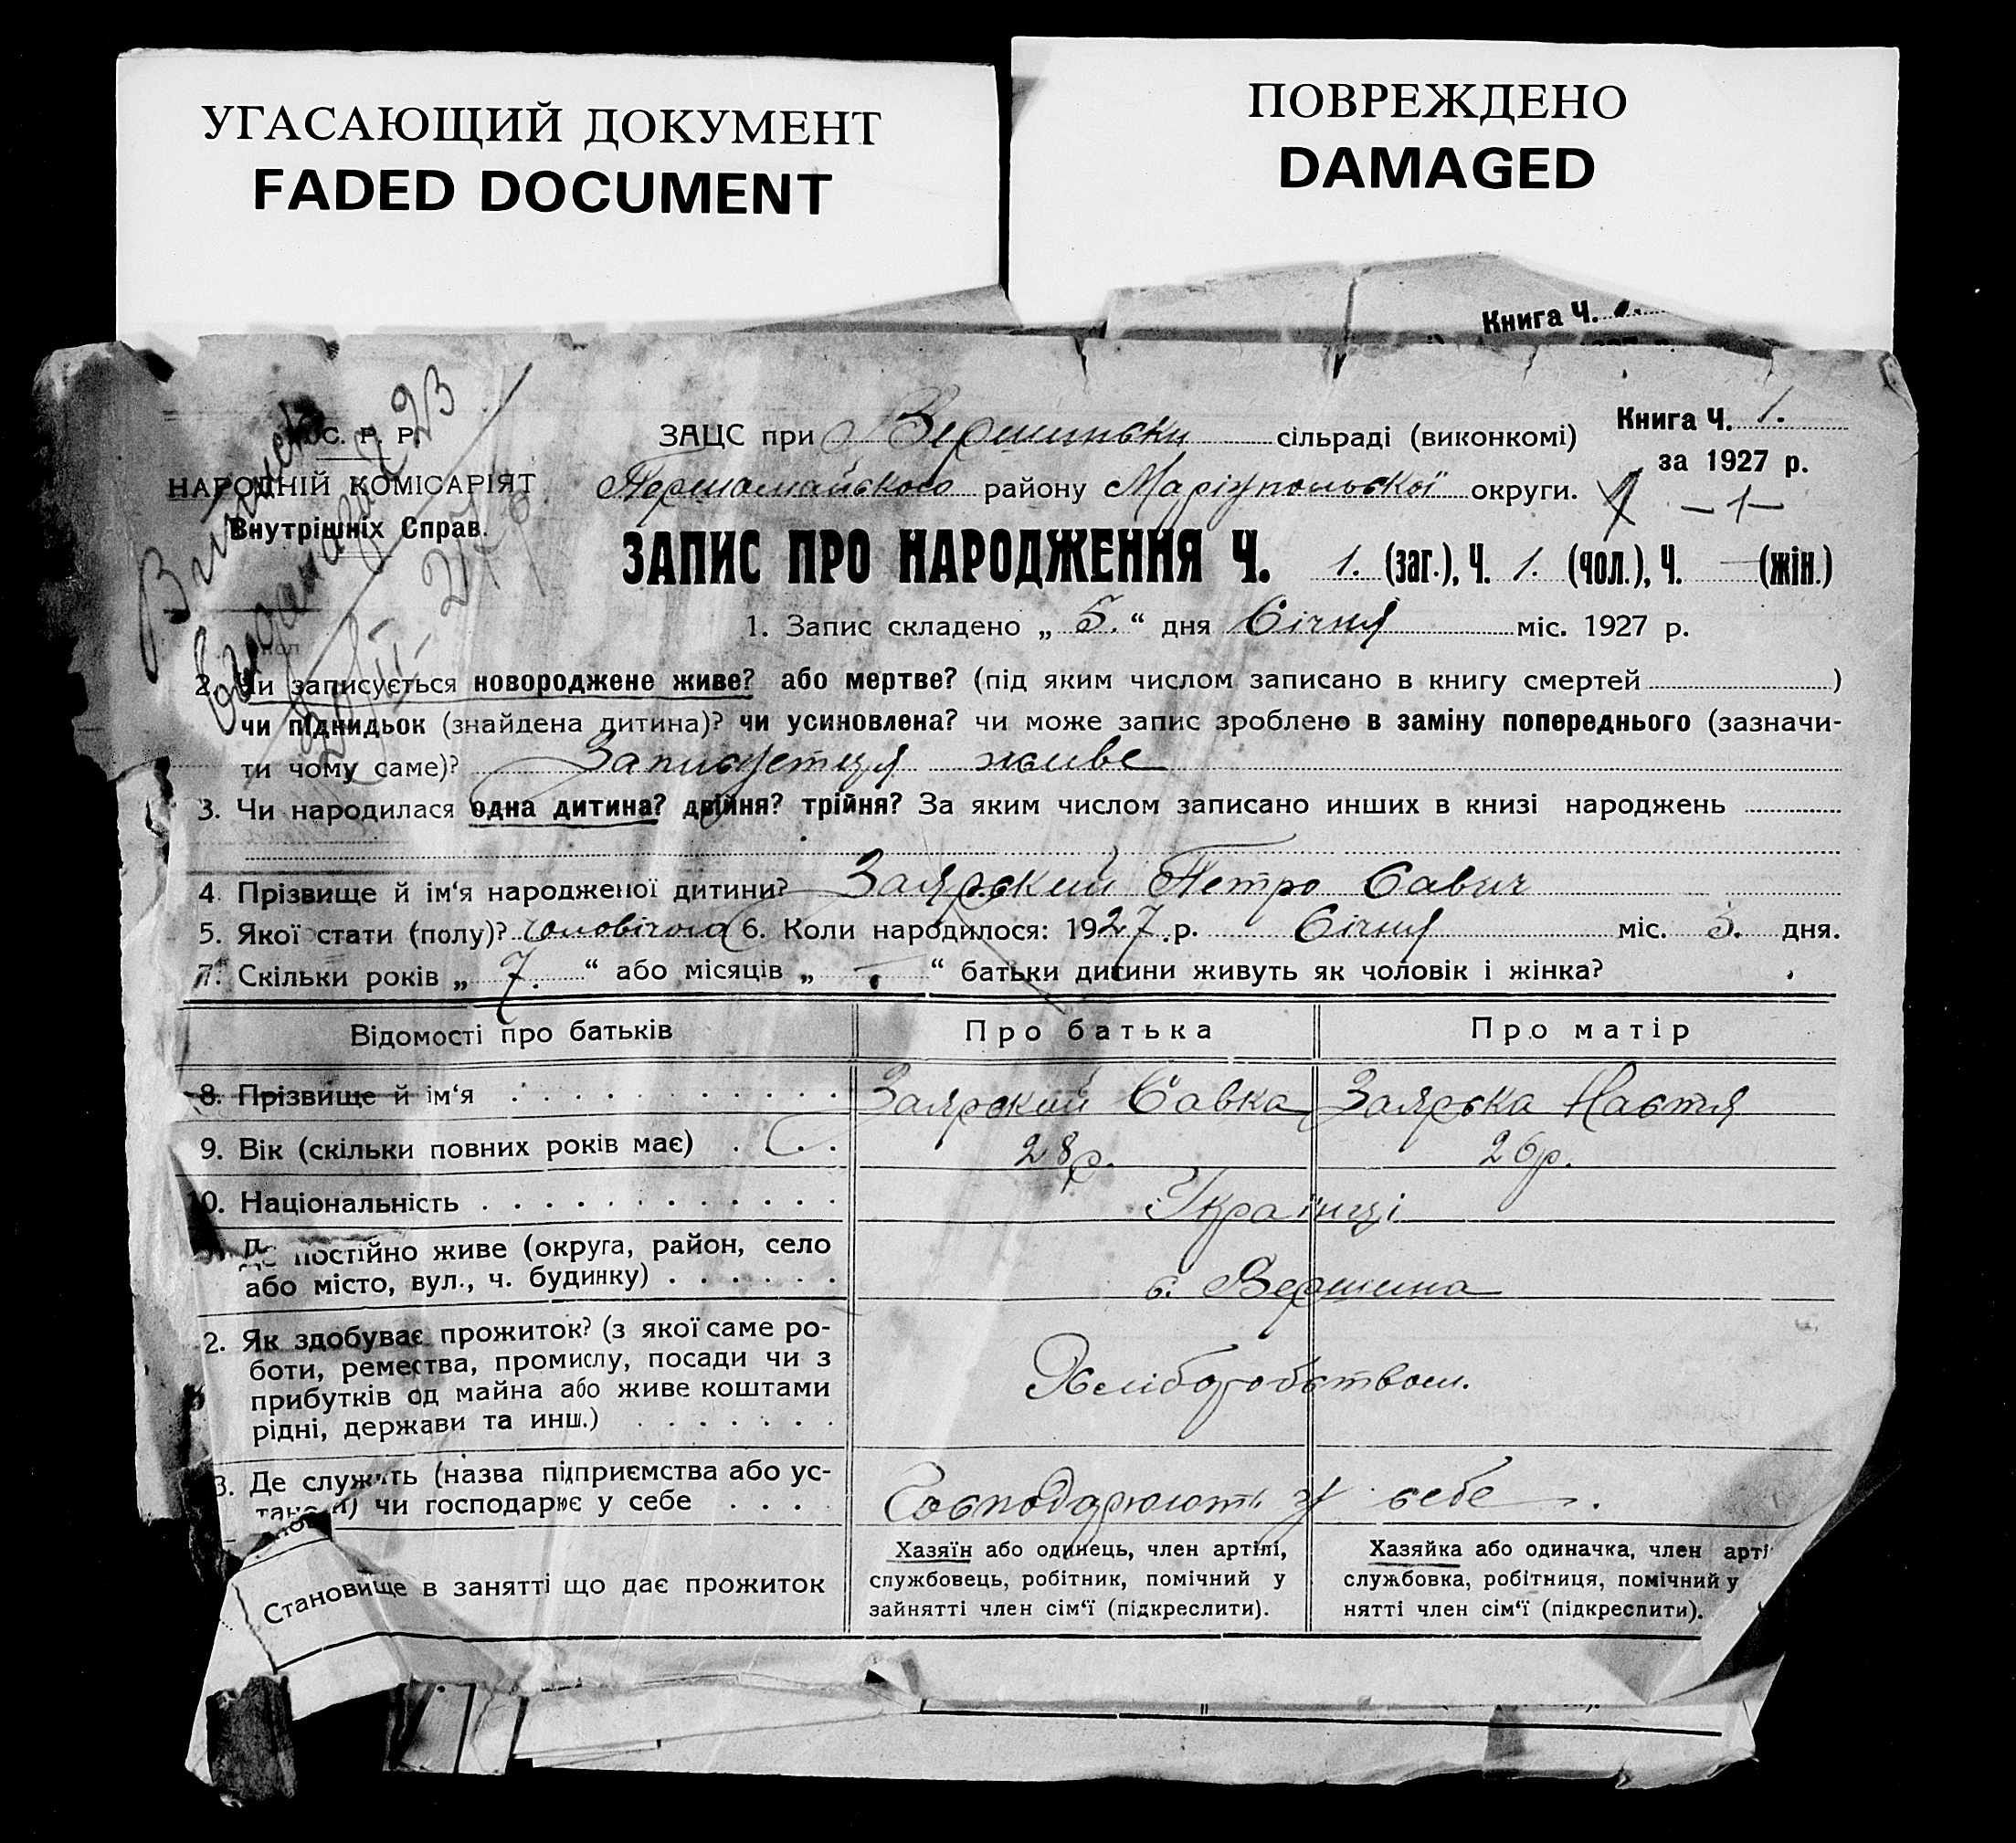 УГАСАЮЩИЙ ДОКУМЕНТ
FADED DOCUMENT
ПОВРЕЖДЕНО
DAMAGED
Книга Ч.
С. Р. Р.
НАРОДНІЙ КОМІСАРІЯТ
Внутрішніх Справ.
ЗАЦС при Вершинськи сільраді (виконкомі)
Книга Ч. 1.
за 1927 р.
Першомайського району Маріупольської округи.
– 1 –
ЗАПИС ПРО НАРОДЖЕННЯ Ч. 1. (заг.), Ч. 1. (чол.), Ч. — (жін.)
1. Запис складено „ 5. “ дня Січня міс. 1927 р.
2. Чи записується новороджене живе? або мертве? (під яким числом записано в книгу смертей )
чи підкидьок (знайдена дитина)? чи усиновлена? чи може запис зроблено в заміну попереднього (зазначи-
ти чому саме)? Записуетця живе
3. Чи народилася одна дитина? двійня? трійня? За яким числом записано инших в книзі народжень
4. Прізвище й ім‘я народженої дитини? Заярский Петро Савич
5. Якої стати (полу)? чоловічого 6. Коли народилося: 1927 р. Січня міс. 3. дня.
7. Скільки років „ 7. “ або місяців „ – “ батьки дитини живуть як чоловік і жінка?
Відомості про батьків Про батька Про матір
8. Прізвище й ім‘я Заярский Савка Заярська Настя
9. Вік (скільки повних років має) 28 р. 26 р.
10. Національність Українці
Де постійно живе (округа, район, село
або місто, вул., ч. будинку) с. Вершина
2. Як здобуває прожиток? (з якої саме ро-
боти, ремества, промислу, посади чи з
прибутків од майна або живе коштами
рідні, держави та инш.) Хліборобством.
3. Де служить (назва підприємства або ус-
танови) чи господарює у себе Господарюють у себе
Становище в занятті що дає прожиток
Хазяїн або одинець, член артілі,
службовець, робітник, помічний у
зайнятті член сім‘ї (підкреслити).
Хазяйка або одиначка, член арті
службовка, робітниця, помічний у
нятті член сім‘ї (підкреслити).